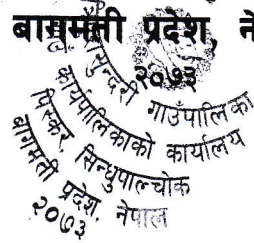 बागमती प्रदेश, ने
२०७३
सुन्दरी गाउँपालिका
कार्यपालिकाको कार्यालय
पिस्कर, सिन्धुपाल्चोक
बागमती प्रदेश, नेपाल
२०७३